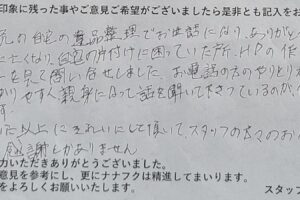 印象に残った事やご意見ご希望がございましたら是非とも記入をお
の自宅の遺品整理でお世話になり、ありがと
亡くなり、自宅の片付けに困っていた所、HPの作
を見て問い合せしました。お電話の方のやりとり
わかりやすく親身になって話を聞いて下さっているのが
以上にきれいにして頂いて、スタッフの方々のお
感謝しかありません
力いただきありがとうございました。
意見を参考にし、更にナナフクは精進してまいります。
をよろしくお願いいたします。
スタッフ